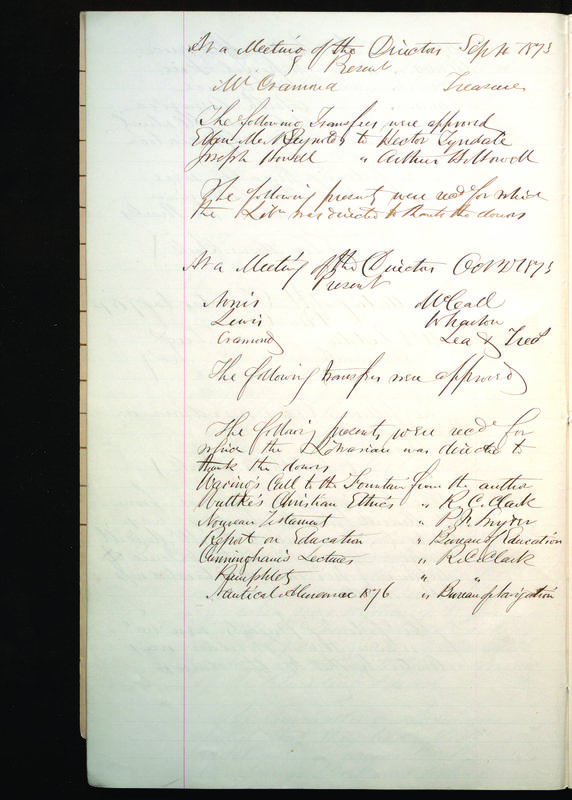 At a Meeting of the Directors Sept 1873
Present
Mr Cramond Treasurer
The following Transfers were approved
Ellen M. Reynolds to Hector Tyndale
Joseph Howell " Arthur Hollowell
The following presents were recd for which
the Libn was directed to thank the donors
At a Meeting of the Directors Oct 1873
Present
Norris McCall
Lewis Wharton
Cramond Lea & Treas
The following transfers were approved
The following presents were recd for
which the Librarian was directed to
thank the donors
Waring's Call to the Fountain from the author
Wuttke's Christian Ethics " R. C. Clark
Nouveau Testament " Snyder
Report on Education " Bureau of Education
Cunningham's Lectures " R. C. Clark
Pamphlets " "
Nautical Almanac 1876 " Bureau of Navigation